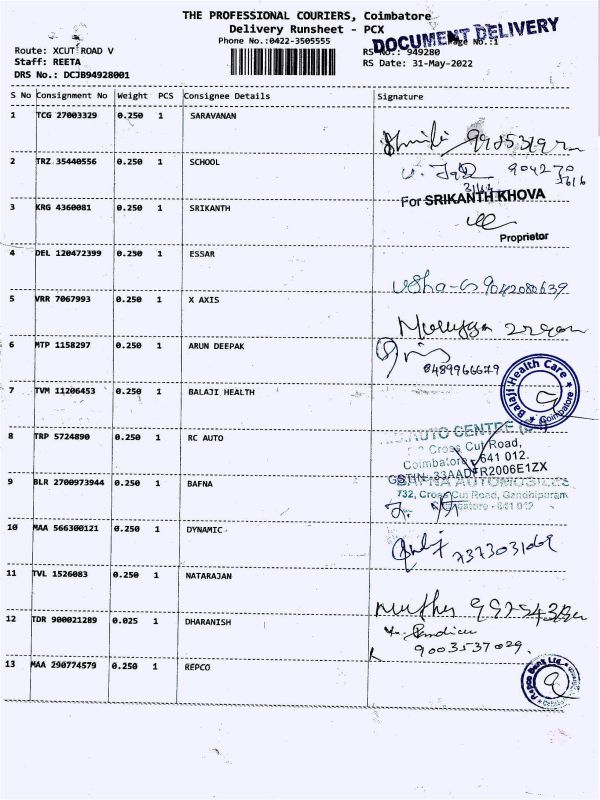 THE PROFESSIONAL COURIERS, Coimbatore
Delivery Runsheet - PCX
Phone No.:0422-3505555
DOCUMENT DELIVERY
Page No.:1
Route: XCUT ROAD V
RS No.: 949280
Staff: REETA
RS Date: 31-May-2022
DRS No.: DCJB94928001
S No Consignment No Weight PCS Consignee Details Signature
1 TCG 27003329 0.250 1 SARAVANAN
2 TRZ 35440556 0.250 1 SCHOOL
For SRIKANTH KHOVA
3 KRG 4360081 0.250 1 SRIKANTH
Proprietor
4 DEL 120472399 0.250 1 ESSAR
Usha
5 VRR 7067993 0.250 1 X AXIS
6 MTP 1158297 0.250 1 ARUN DEEPAK
8489966679
7 TVM 11206453 0.250 1 BALAJI HEALTH
Balaji Health Care
Coimbatore
8 TRP 5724890 0.250 1 RC AUTO
AUTO CENTRE
Cross Cut Road,
Coimbatore - 641 012.
GSTIN-33AADFR2006E1ZX
9 BLR 2700973944 0.250 1 BAFNA
BAFNA AUTOMOBILES
732, Cross Cut Road, Gandhipuram
Coimbatore - 641 012
10 MAA 566300121 0.250 1 DYNAMIC
7373031069
11 TVL 1526083 0.250 1 NATARAJAN
12 TDR 900021289 0.025 1 DHARANISH
9003537029.
13 MAA 290774579 0.250 1 REPCO
Repco Bank Ltd.